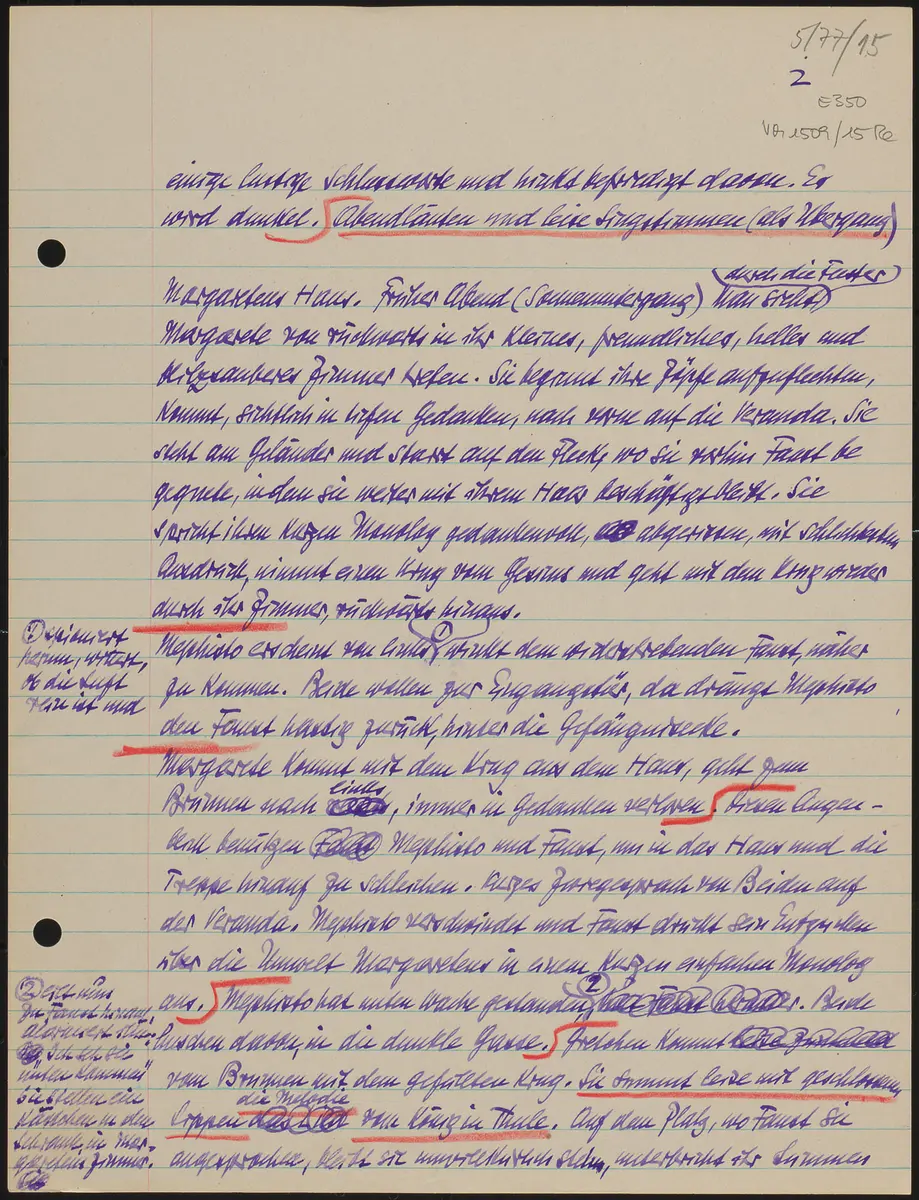 5/77/15
2
E350
VM 1509/15 Re
einige lustige Schlussworte und hinkt befriedigt davon. Es
wird dunkel. Abendläuten und leise Singstimmen (als Übergang)
durch die Fenster
Margaretens Haus. Früher Abend (Sonnenuntergang) Man sieht
Margarete von rückwärts in ihr kleines, freundliches, helles und
blitzsauberes Zimmer treten. Sie beginnt ihre Zöpfe aufzuflechten,
kommt, sichtlich in tiefen Gedanken, nach vorne auf die Veranda. Sie
steht am Geländer und starrt auf den Fleck, wo sie vorhin Faust be
gegnete, indem sie weiter mit ihrem Haar beschäftigt bleibt. Sie
spricht ihren kurzen Monolog gedankenvoll, abgerissen, mit schlichtesten
Ausdruck, nimmt einen Krug vom Gesims und geht mit dem Krug wieder
durch ihr Zimmer, rückwärts hinaus.
Mephisto erscheint von links, ① winkt dem widerstrebenden Faust, näher
zu kommen. Beide wollen zur Eingangstür, da drängt Mephisto
den Faust hastig zurück, hinter die Gefängnisecke.
① spioniert
herum, wittert,
ob die Luft
rein ist und
Margarete kommt mit dem Krug aus dem Haus, geht zum
Brunnen nach links, immer in Gedanken verloren. Diesen Augen-
blick benützen Mephisto und Faust, um in das Haus und die
Treppe hinauf zu schleichen. Kurzes Zwiegespräch von Beiden auf
der Veranda. Mephisto verschwindet und Faust drückt sein Entzücken
über die Umwelt Margaretens in einem kurzen einfachen Monolog
aus. Mephisto hat unten Wache gestanden, ② Beide
huschen davon, in die dunkle Gasse. Gretchen kommt
vom Brunnen mit dem gefüllten Krug. Sie summt leise mit geschlossenen
Lippen die Melodie vom König in Thule. Auf dem Platz, wo Faust sie
angesprochen, bleibt sie unwillkürlich stehen, unterbricht ihr Summen
② eilt nun
zu Faust hinauf,
alarmiert ihn:
"Ich seh sie
unten kommen"
Sie stellen ein
Kästchen in den
Schrank in Mar-
garetens Zimmer.